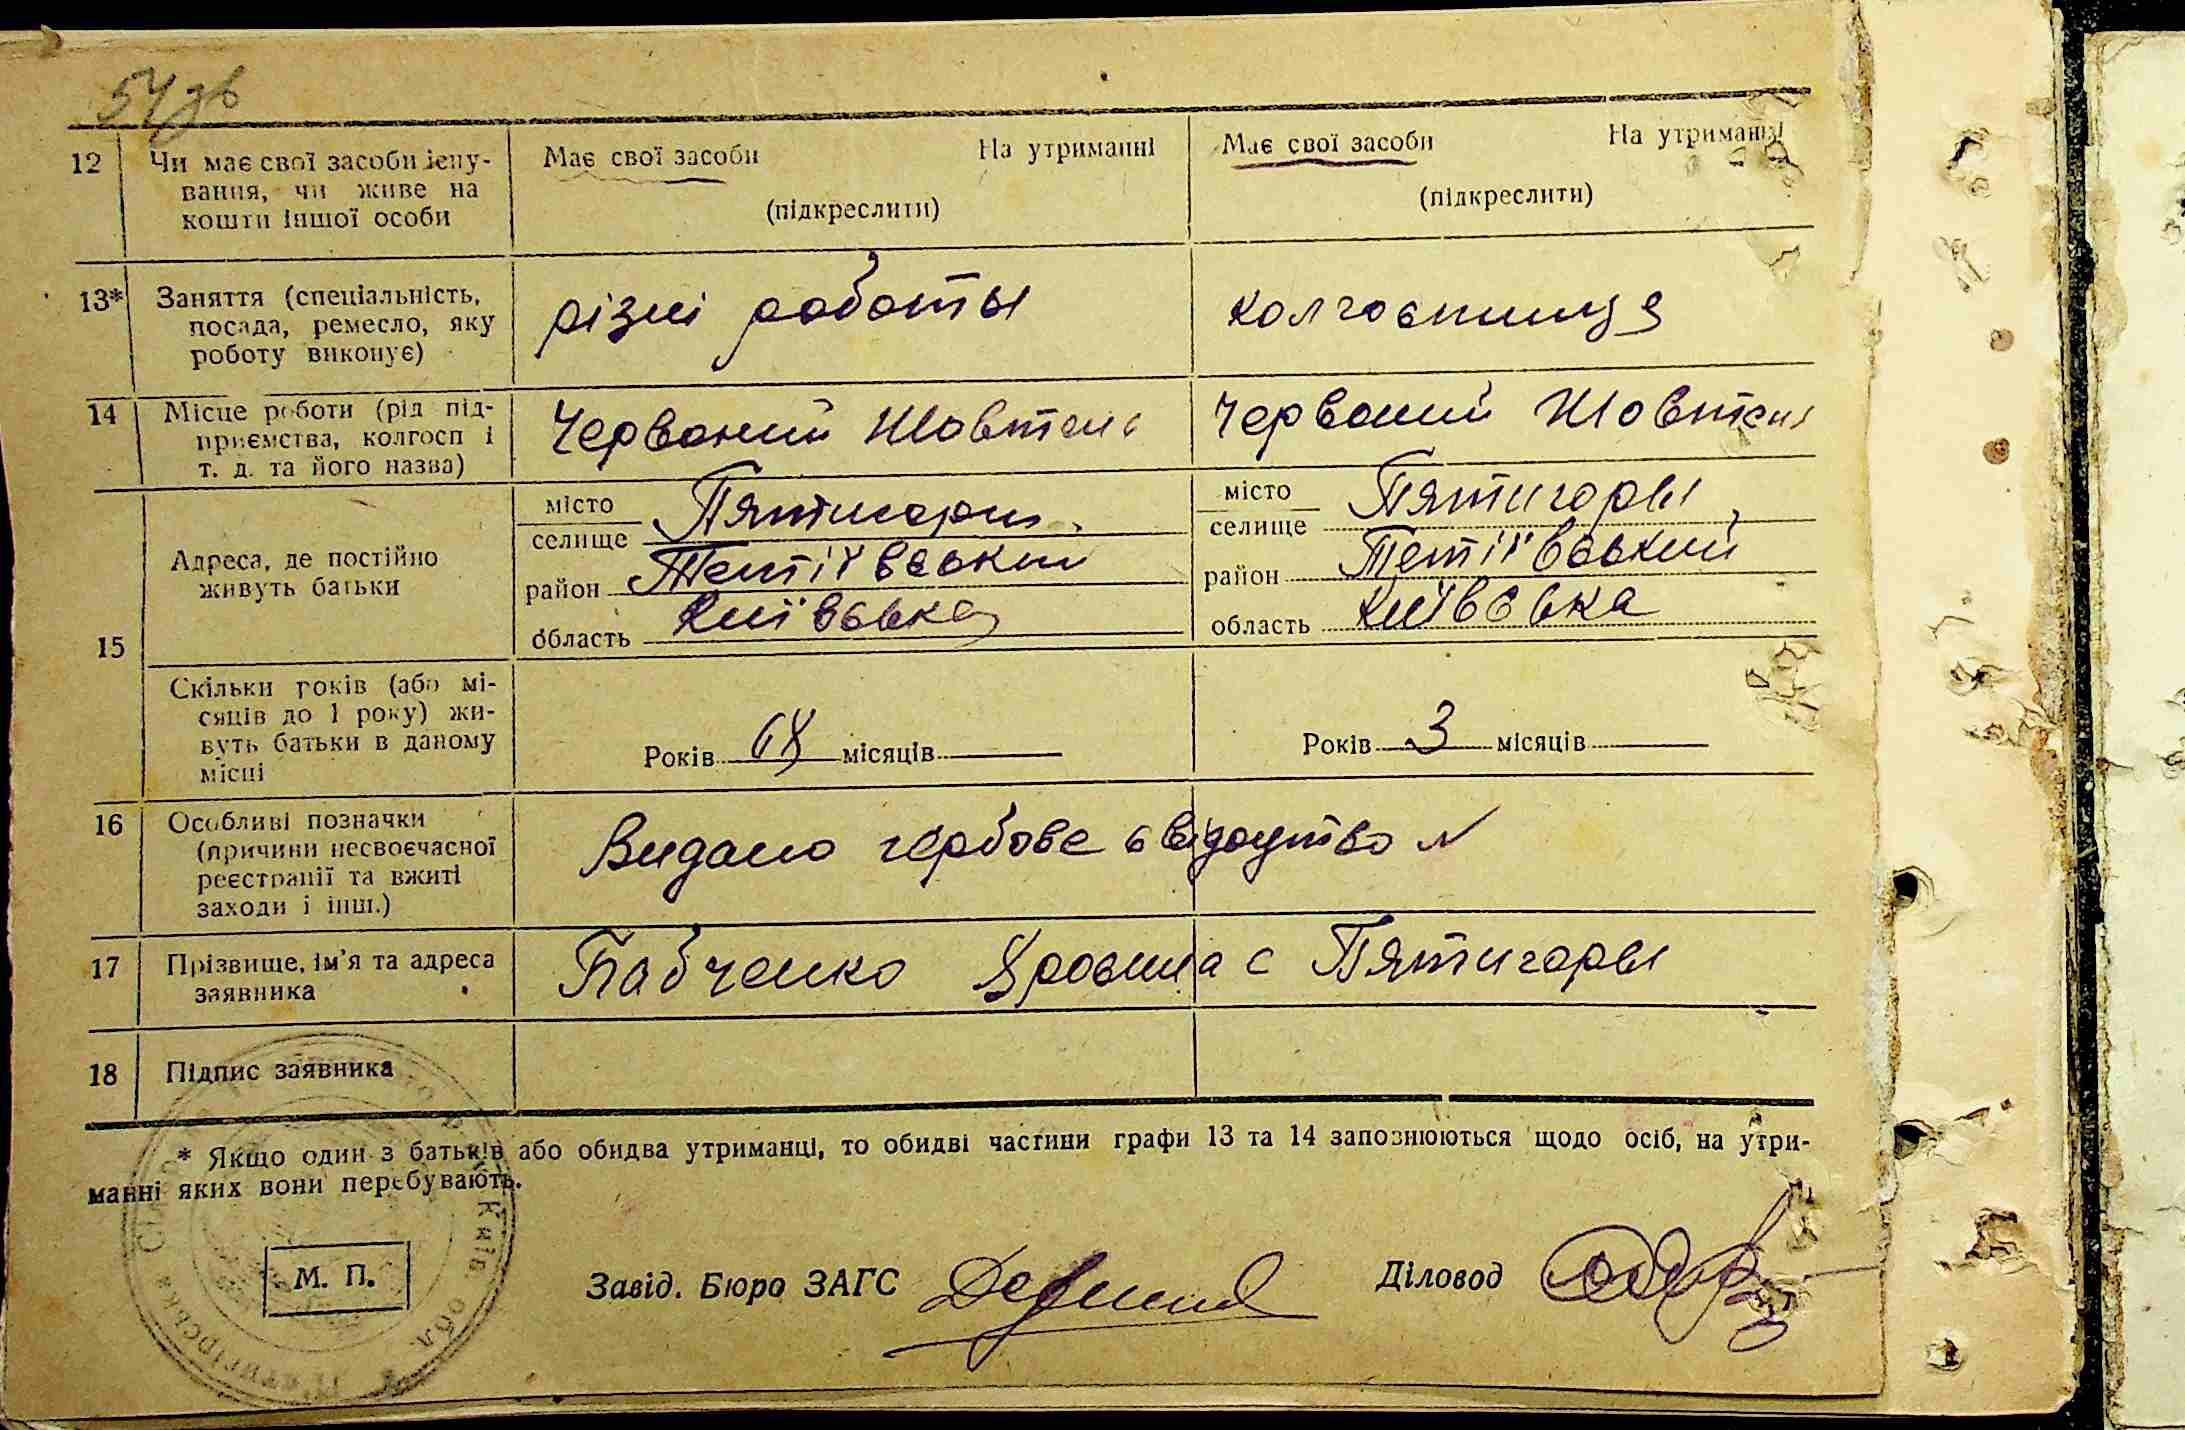 54 зв
12 Чи має свої засоби існу- Має свої засоби На утриманні Має свої засоби На утриманні
вання, чи живе на (підкреслити) (підкреслити)
кошти іншої особи
13* Заняття (спеціальність, різні работы колгоспниця
посада, ремесло, яку
роботу виконує)
14 Місце роботи (рід під- Червоний Жовтень Червоний Жовтень
приємства, колгосп і
т. д. та його назва)
15 Адреса, де постійно живуть батьки
місто селище Пятигоры місто селище Пятигоры
район Тетіївський район Тетіївський
область Київська область Київська
Скільки років (або мі-
сяців до 1 року) жи-
вуть батьки в даному Років місяців Років 3 місяців
місці
16 Особливі позначки Видано гербове свідоцтво №
(причини несвоєчасної
реєстрації та вжиті
заходи і інш.)
17 Прізвище, ім'я та адреса Бабченко с Пятигоры
заявника
18 Підпис заявника
* Якщо один з батьків або обидва утриманці, то обидві частини графи 13 та 14 запознюються щодо осіб, на утри-
манні яких вони перебувають.
М. П.
Завід. Бюро ЗАГС Діловод